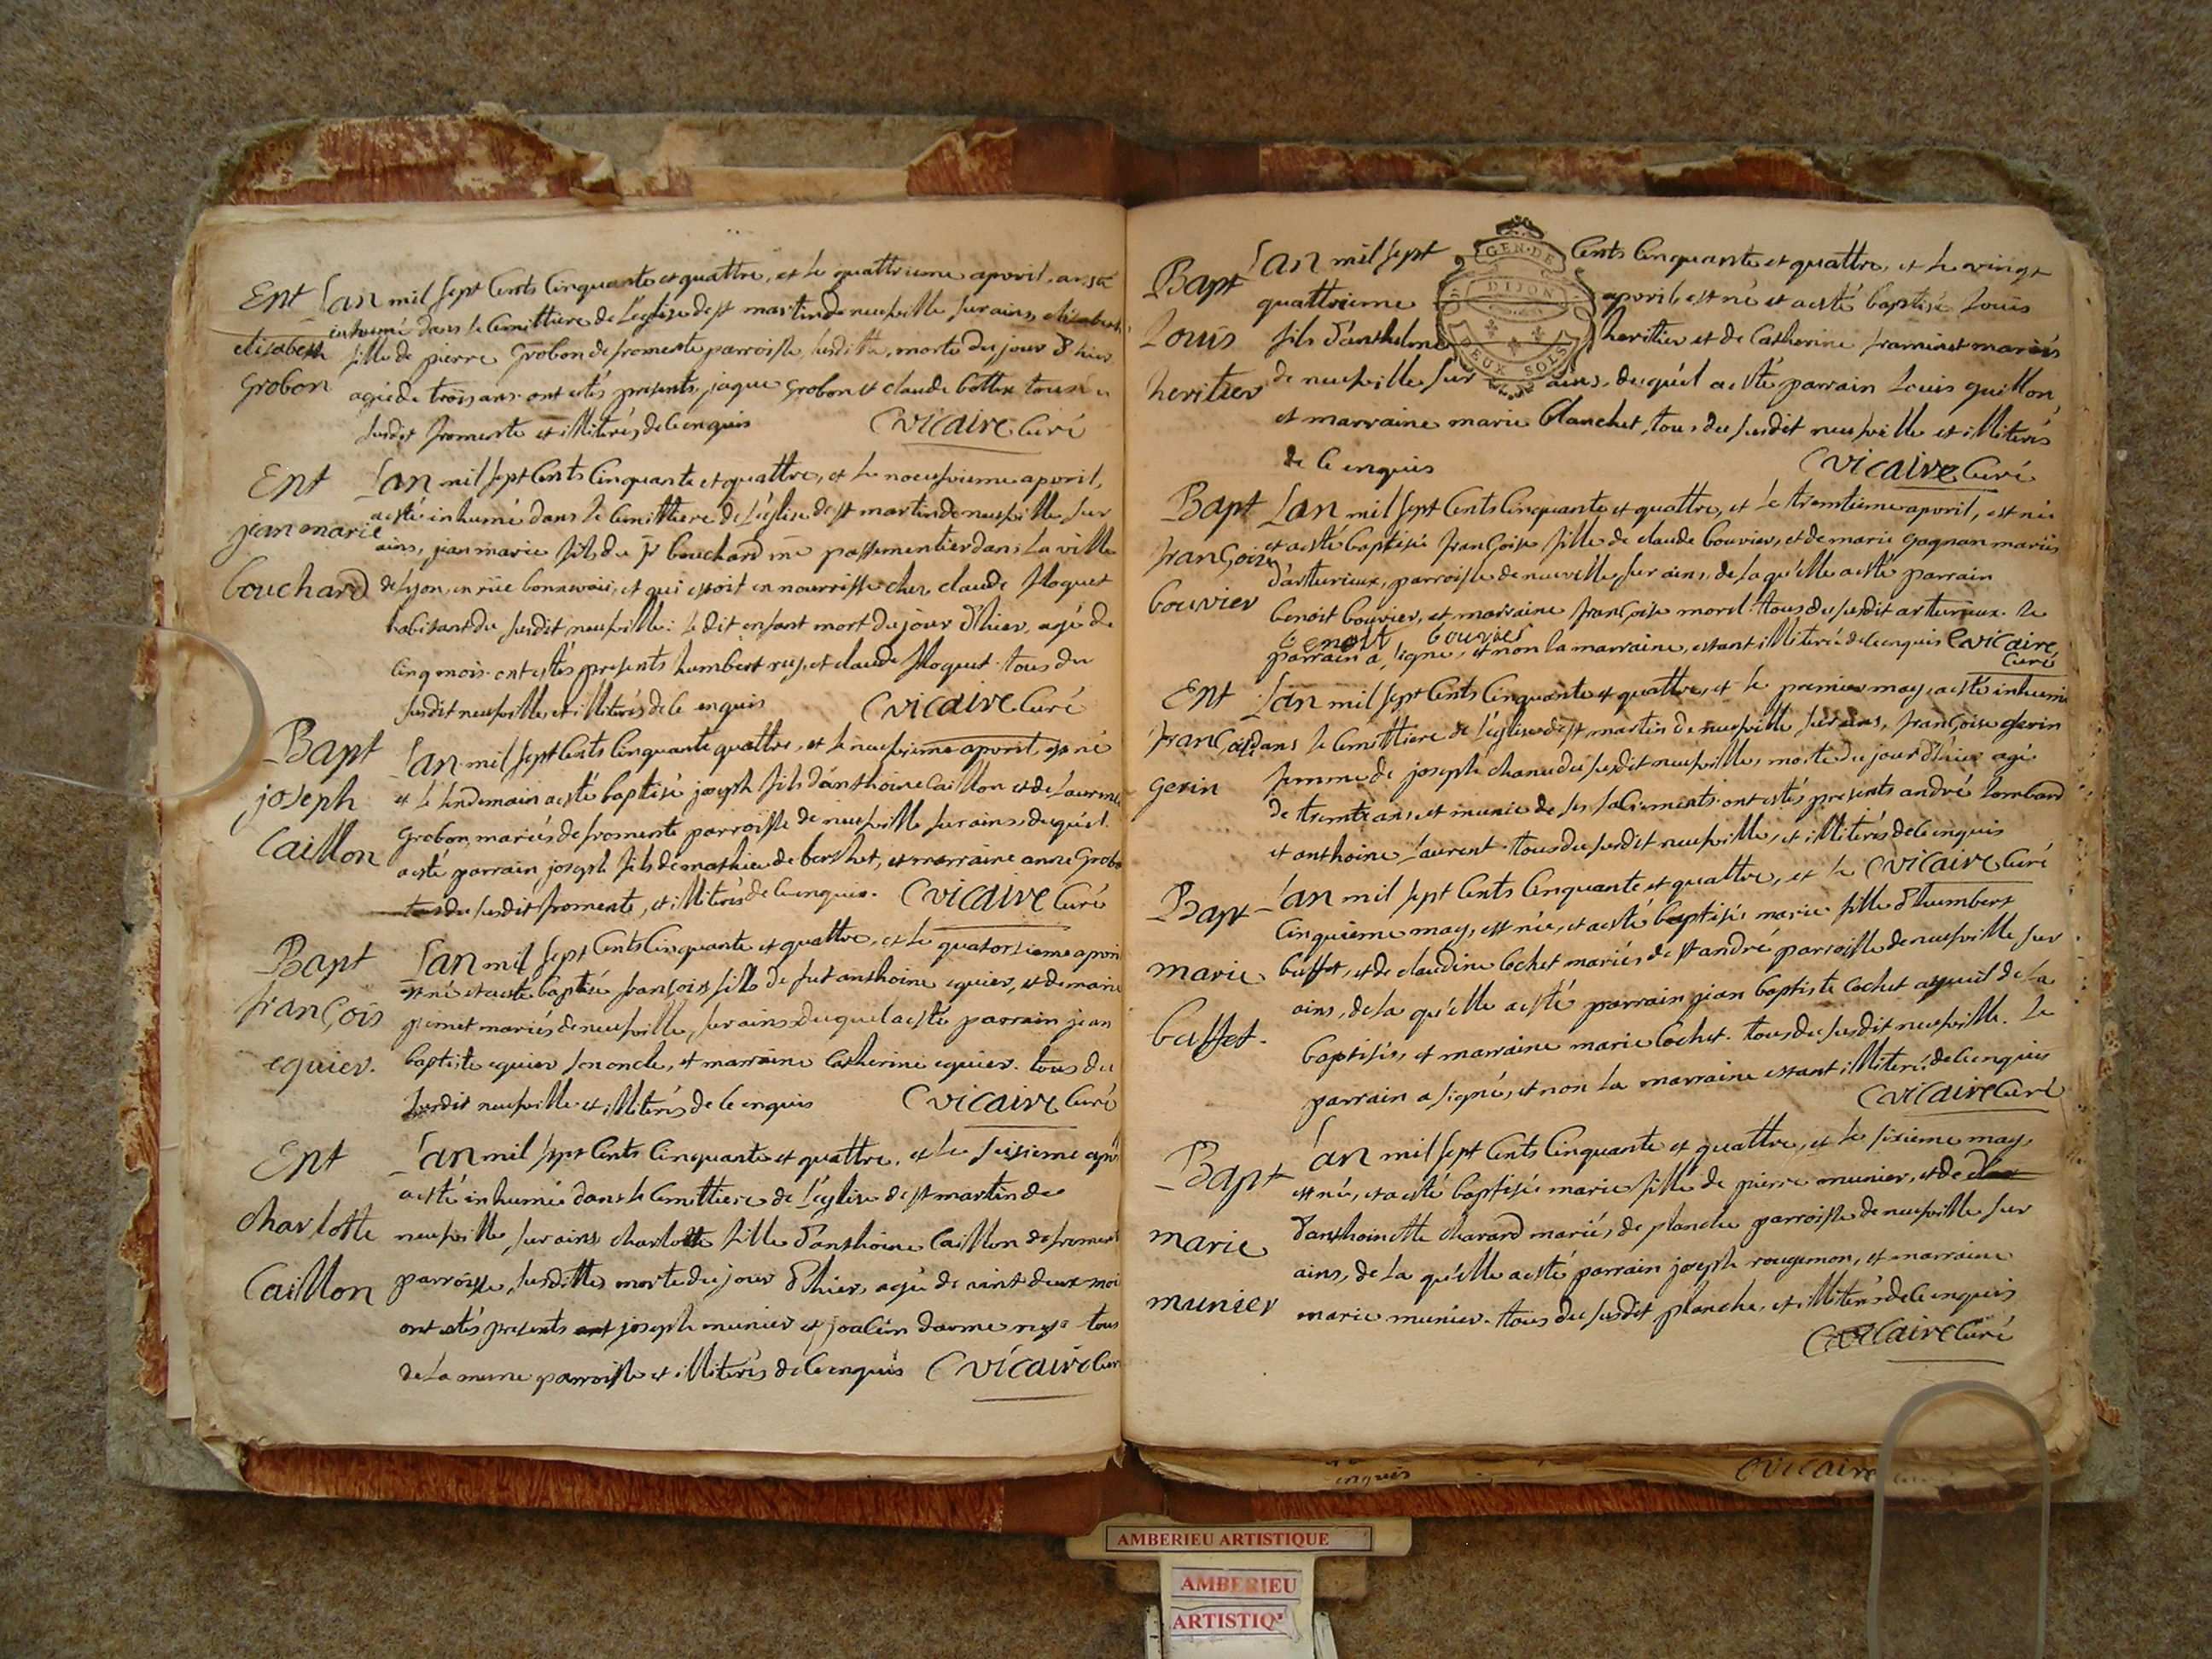 Ent
elisabeth
Grobon
Lan mil sept Cents Cinquante et quattre, et le quattrieme apvril, a esté
inhumé dans le Cimittiere de l'eglise de st martin de neufville sur ains, elisabeth
fille de pierre Grobon de fromente parroisse susditte, morte du jour d'hier
agée de trois ans. ont estés presents jaque Grobon et claude bottex tous du
susdit fromente et illiterés de ce enquis Cvicaire Curé
Ent
jean marie
bouchard
Lan mil sept Cents Cinquante et quattre, et le noeufvieme apvril,
a esté inhumé dans le Cimittiere de l'eglise de st martin de neufville sur
ains, jean marie fils du sr bouchard me passementier dans la ville
de lyon, en rüe bonnevaie, et qui estoit en nourrisse chez claude floquet
habitant du susdit neufville: le dit enfant mort du jour d'hier, agé de
cinq mois. ont estés presents humbert rey, et claude floquet. tous du
susdit neufville, et illiterés de ce enquis Cvicaire Curé
Bapt
joseph
Caillon
Lan mil sept Cents Cinquante quattre, et le neufvieme apvril, est né
et le lendemain a esté baptisé joseph fils d'anthoine Caillon et de laurence
Grobon mariés de fromente parroisse de neufville sur ains, duquel
a esté parrain joseph fils de mathieu de berchet, et marraine anne Grobon
tous du susdit fromente, et illiterés de ce enquis. Cvicaire Curé
Bapt
françois
equier.
Lan mil sept Cents Cinquante et quattre, et le quatorsieme apvril
est né et a esté baptisé françois fils de fut anthoine equier, et de marie
grimet mariés de neufville, sur ains duquel a esté parrain jean
baptiste equier son oncle, et marraine Catherine equier. tous du
susdit neufville et illiterés de ce enquis Cvicaire Curé
Ent
charlotte
Caillon
Lan mil sept Cents Cinquante et quattre, et le seisieme apvril
a esté inhumé dans le Cimettiere de l'eglise de st martin de
neufville, sur ains charlotte fille d'anthoine Caillon de fromente
parroisse, susditte morte du jour d'hier, agée de vint deux mois
ont estés presents joseph munier et joachin darme rey tous
de la meme parroisse et illiterés de ce enquis Cvicaire Curé
Bapt
Louis
heritier
GEN. DE
DIJON
DEUX SOLS
Lan mil sept Cents Cinquante et quattre, et le vingt
quattrieme apvril est né et a esté baptisé Louis
fils d'anthelme heritier et de Catherine framinet mariés
de neufville sur ains, duquel a esté parrain Louis quillon,
et marraine marie blanchet, tous du susdit neufville et illiterés
de ce enquis Cvicaire Curé
Bapt
françoise
bouvier
Lan mil sept Cents Cinquante et quattre, et le trentieme apvril, est née
et a esté baptisée françoise fille de claude bouvier, et de marie gagnan mariés
d'arturieux, parroisse de neuville sur ains, de la qu'elle a esté parrain
benoit bouvier, et marraine françoise morel. tous du susdit arturieux. le
benoit bouvier
parrain a signé, et non la marraine, estant illiterée de ce enquis Cvicaire
Curé
Ent
françoise
gerin
Lan mil sept Cents Cinquante et quattre, et le premier may, a esté inhumé
dans le Cimettiere de l'eglise de st martin de neufville sur ains, françoise gerin
femme de joseph chanu du susdit neufville, morte du jour d'hier agé
de trente ans, et munie de ses sacrements. ont estés presents andré lombard
et anthoine laurent. tous du susdit neufville, et illiterés de ce enquis
Cvicaire Curé
Bapt
marie
buffet.
Lan mil sept Cents Cinquante et quattre, et le
Cinquieme may, est née, et a esté baptisée marie fille d'humbert
buffet, et de claudine Cochet mariés de st andré parroisse de neufville sur
ains, de la qu'elle a esté parrain jean baptiste Cochet ayeuil de la
baptisée, et marraine marie Cochet. tous du susdit neufville. le
parrain a signé, et non la marraine estant illiterée de ce enquis
Cvicaire Curé
Bapt
marie
munier
Lan mil sept Cents Cinquante et quattre, et le sixieme may,
est née, et a esté baptisée marie fille de pierre munier, et de
d'anthoinette charard mariés, de planche parroisse de neufville sur
ains, de la qu'elle a esté parrain joseph rougemon, et marraine
marie munier. tous du susdit planche, et illiterés de ce enquis
Cvicaire Curé
enquis Cvicaire
AMBERIEU ARTISTIQUE
AMBERIEU
ARTISTIQ